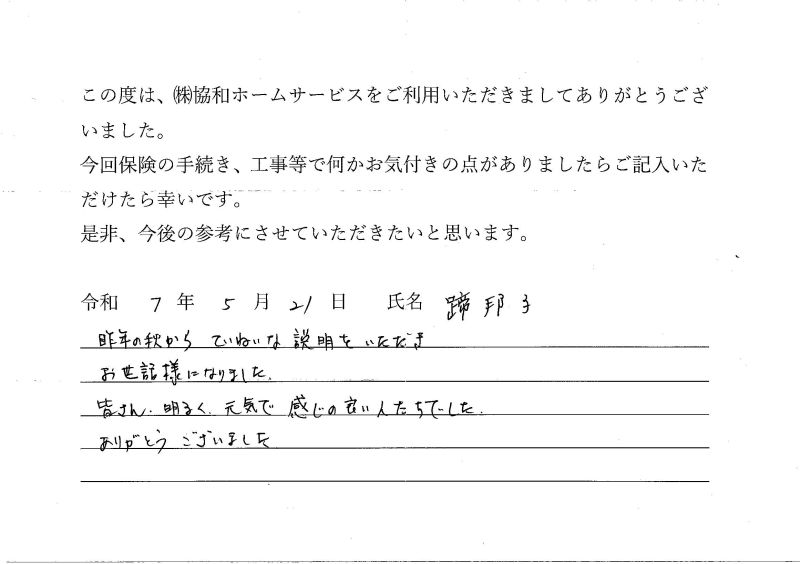 この度は、㈱協和ホームサービスをご利用いただきましてありがとうござ
いました。
今回保険の手続き、工事等で何かお気付きの点がありましたらご記入いた
だけたら幸いです。
是非、今後の参考にさせていただきたいと思います。
令和 7 年 5 月 21 日 氏名 蹄 邦子
昨年の秋から ていねいな 説明を いただき
お世話様になりました.
皆さん. 明るく. 元気で 感じの良い人たちでした.
ありがとう ございました